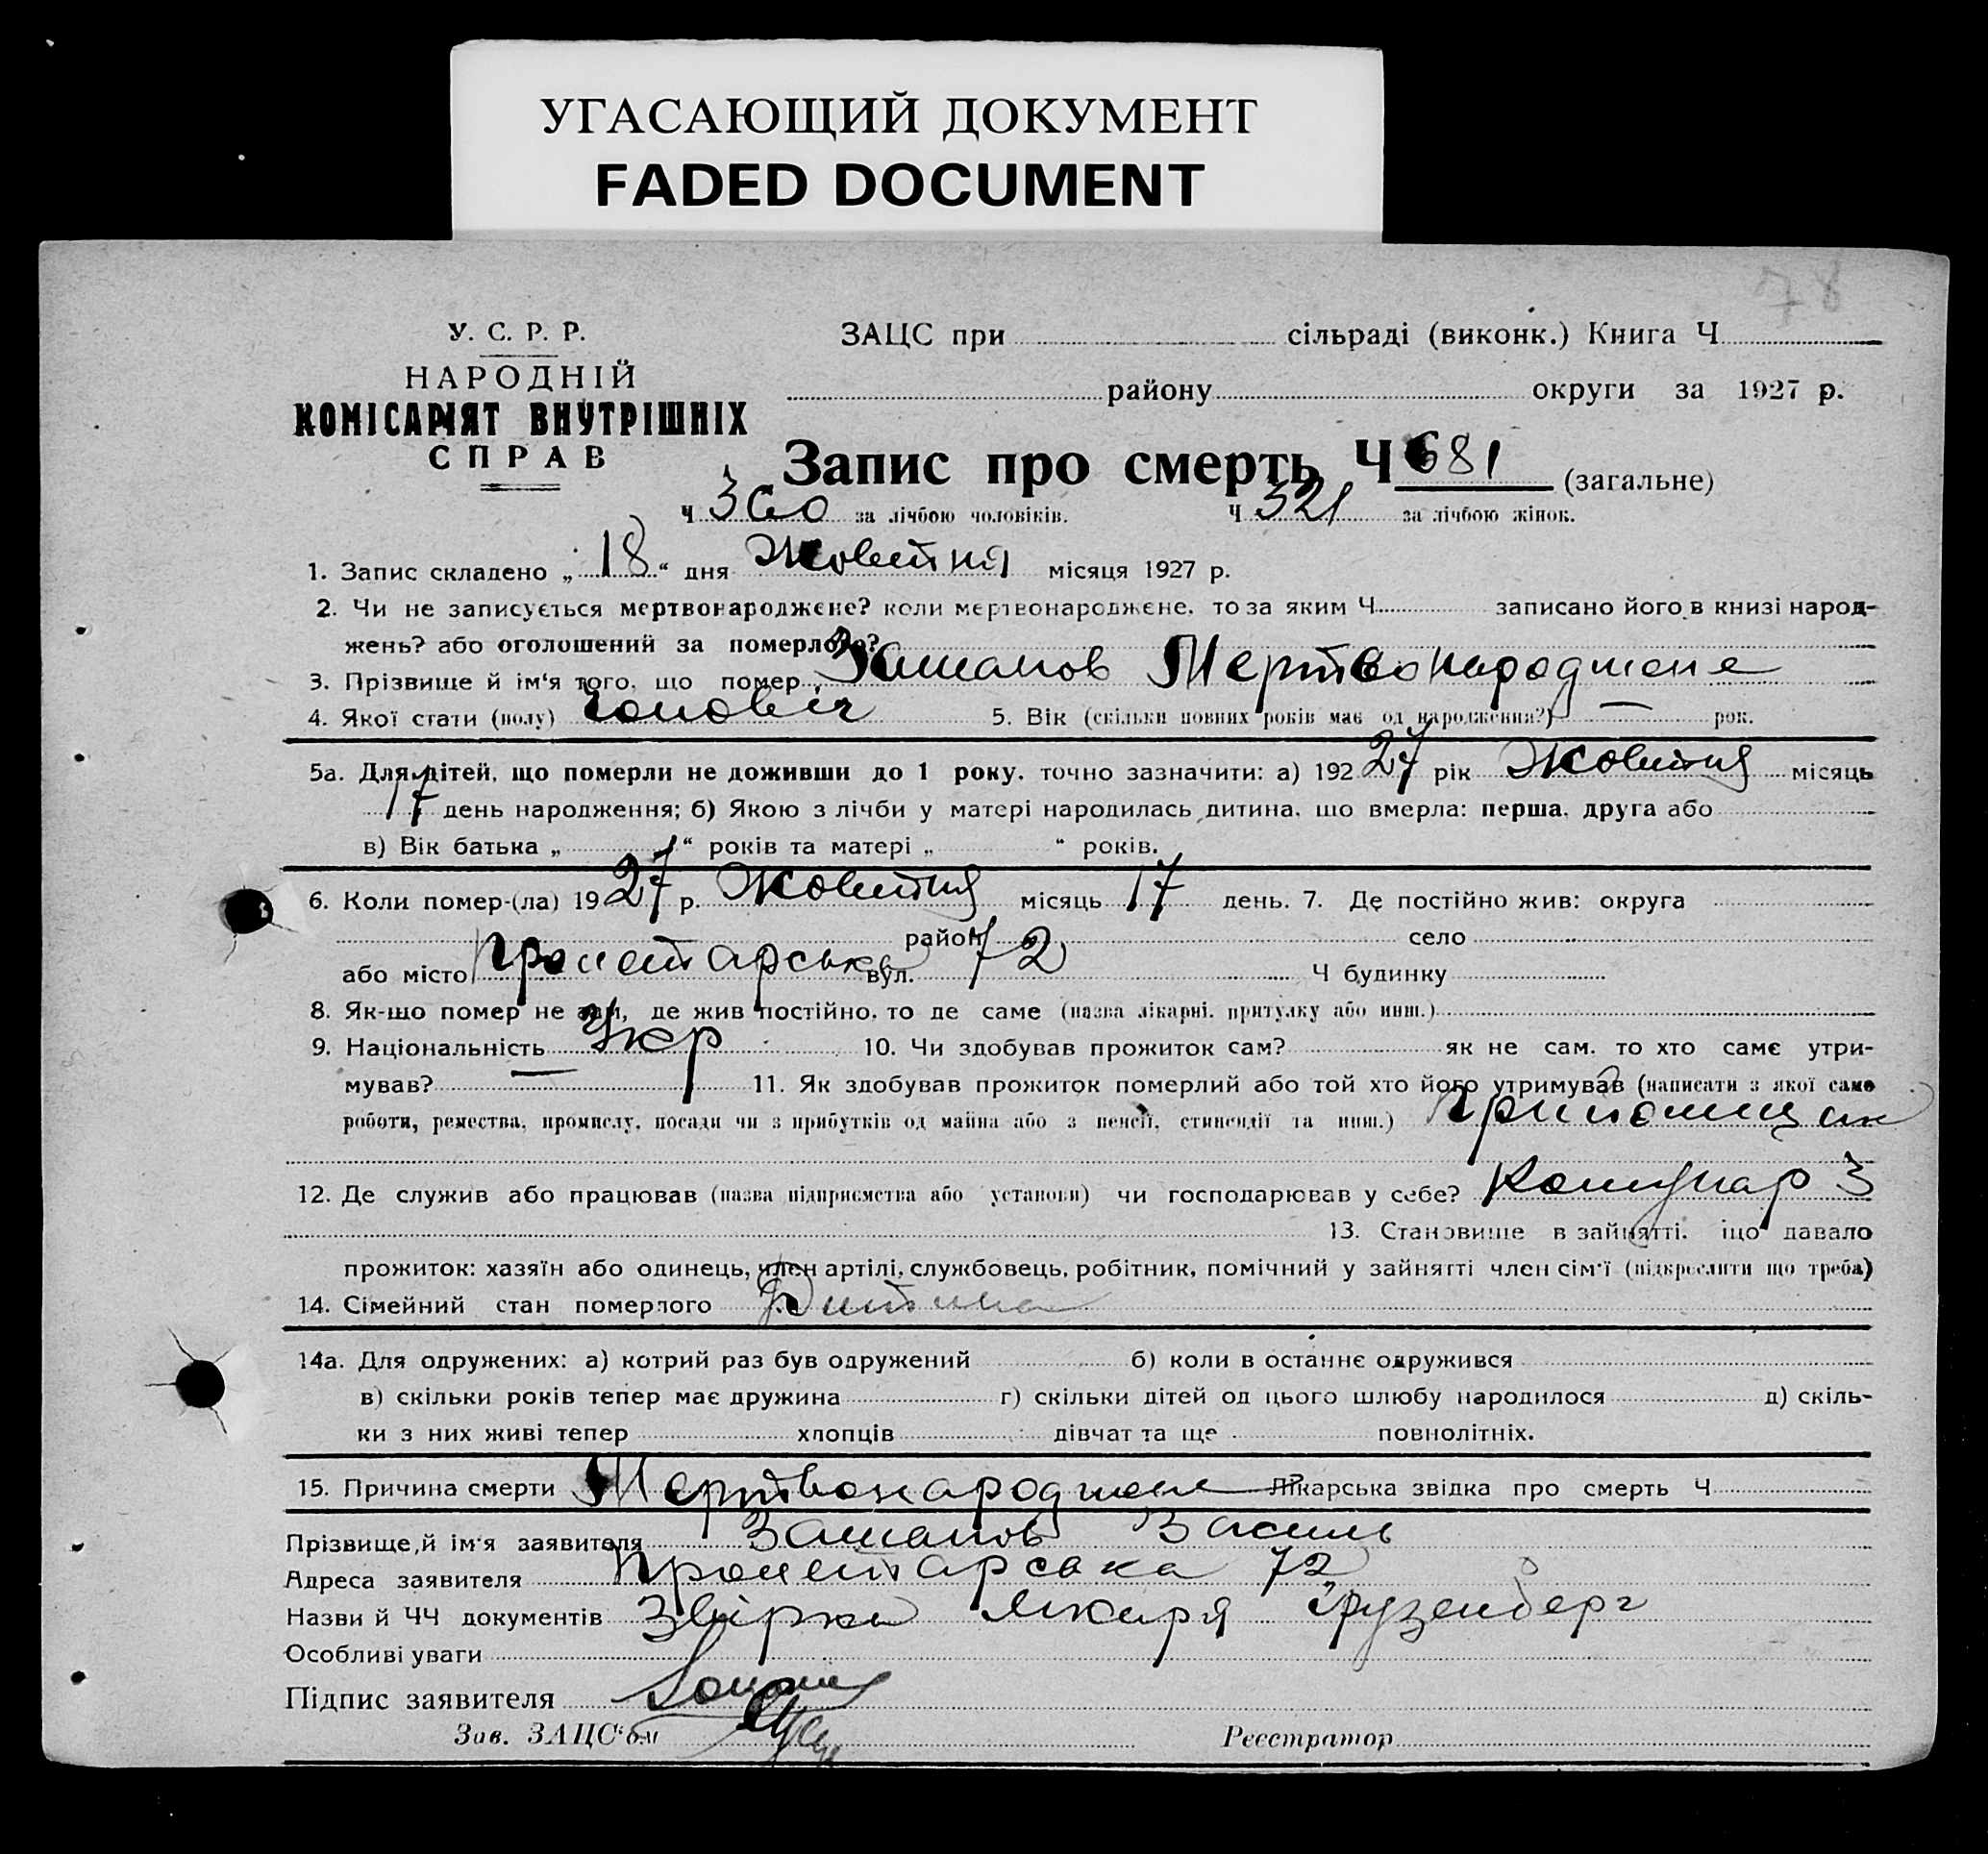 УГАСАЮЩИЙ ДОКУМЕНТ
FADED DOCUMENT
78
У. С. Р. Р.
НАРОДНІЙ
КОМІСАРІЯТ ВНУТРІШНІХ
СПРАВ
ЗАЦС при сільраді (виконк.) Книга Ч
району округи за 1927 р.
Запис про смерть Ч 681 (загальне)
Ч 360 за лічбою чоловіків. Ч 321 за лічбою жінок.
1. Запис складено „ 18 “ дня Жовтня місяця 1927 р.
2. Чи не записується мертвонароджене? коли мертвонароджене, то за яким Ч записано його в книзі народ-
жень? або оголошений за померлого?
3. Прізвище й ім'я того, що помер Мертвонароджене
4. Якої стати (полу) 5. Вік (скільки повних років має од народження?) — рок.
5а. Для дітей, що померли не доживши до 1 року, точно зазначити: а) 192 27 рік Жовтня місяць
17 день народження; б) Якою з лічби у матері народилась дитина, що вмерла: перша, друга або
в) Вік батька „ “ років та матері „ “ років.
6. Коли помер-(ла) 19 27 р. Жовтня місяць 17 день. 7. Де постійно жив: округа
район село
або місто Пролетарська вул. 72 Ч будинку
8. Як-що помер не там, де жив постійно, то де саме (назва лікарні, притулку або инш.)
9. Національність Укр 10. Чи здобував прожиток сам? як не сам, то хто саме утри-
мував? 11. Як здобував прожиток померлий або той хто його утримував (написати з якої саме
роботи, ремества, промислу, посади чи з прибутків од майна або з пенсії, стипендії та инш.)
12. Де служив або працював (назва підприємства або установи) чи господарював у себе? Комунар 3
13. Становище в зайнятті, що давало
прожиток: хазяїн або одинець, член артілі, службовець, робітник, помічний у зайнятті член сім'ї (підкреслити що треба)
14. Сімейний стан померлого Дитина
14а. Для одружених: а) котрий раз був одружений б) коли в останнє одружився
в) скільки років тепер має дружина г) скільки дітей од цього шлюбу народилося д) скіль-
ки з них живі тепер хлопців дівчат та ще повнолітніх.
15. Причина смерти Мертвонароджене Лікарська звідка про смерть Ч
Прізвище й ім'я заявителя Василь
Адреса заявителя Пролетарська 72
Назви й ЧЧ документів лікаря Грузенберг
Особливі уваги
Підпис заявителя
Зав. ЗАЦС'ом Реєстратор